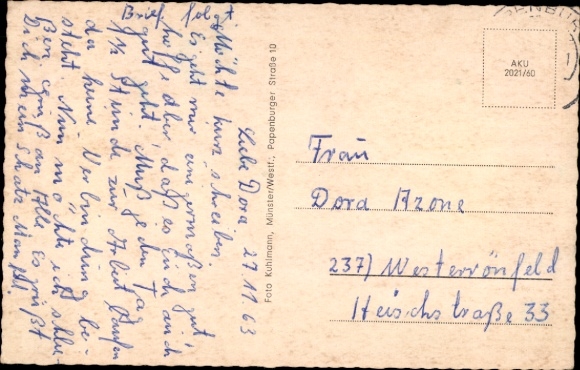 Brief folgt
Liebe Dora 27 11 63
Möchte kurz schreiben.
Es geht mir einigermaßen gut,
hoffe aber, daß es Euch auch
gut geht. Muß jeden Tag
1/2 Stunde zur Arbeit laufen
da keine Verbindung be-
steht. Nun möchte ich schlie-
ßen Gruß an Alle Es grüßt
Dich Dein Schatz Manfred
Foto Kuhlmann, Münster/Westf., Papenburger Straße 10
AKU
2021/60
Frau
Dora Azone
237) Westerrönfeld
Heischstraße 33